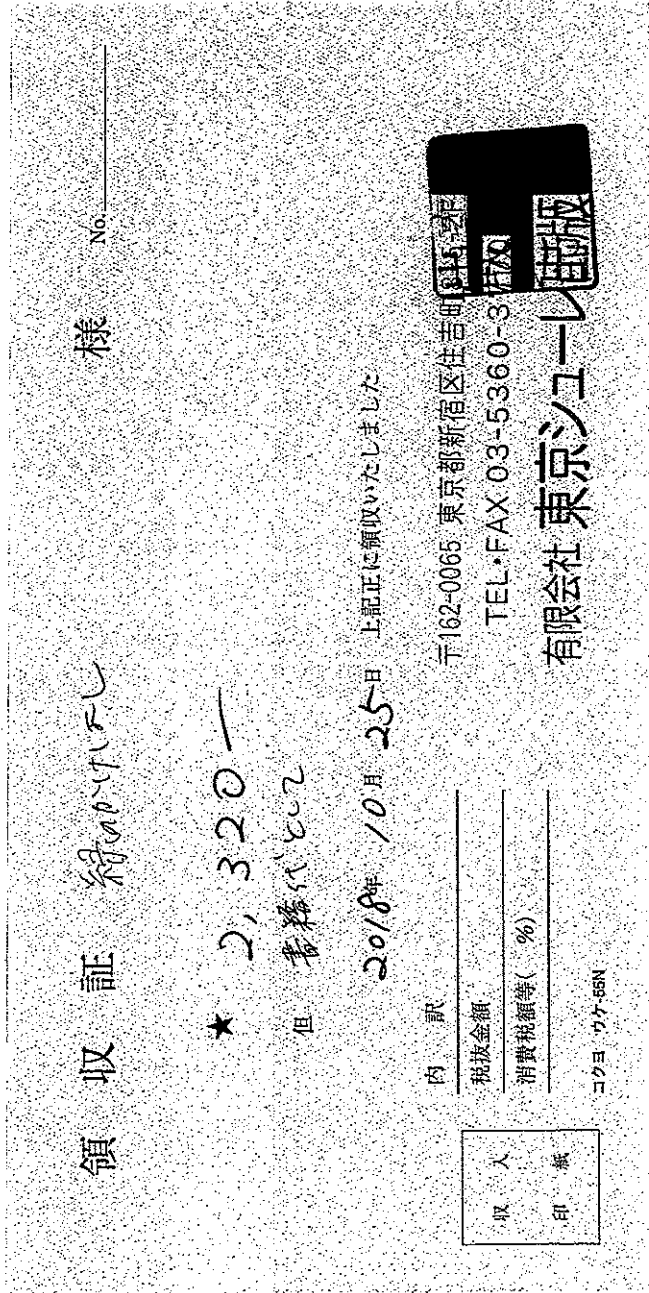 領収証 緑のかけはし 様 No.
★ 2,320—
但 書籍代として
2018年 10月 25日 上記正に領収いたしました
内訳
税抜金額
消費税額等( %)
収入
印紙
コクヨ ウケ-55N
〒162-0065 東京都新宿区住吉町
TEL・FAX 03-5360-3770
有限会社 東京シューレ出版